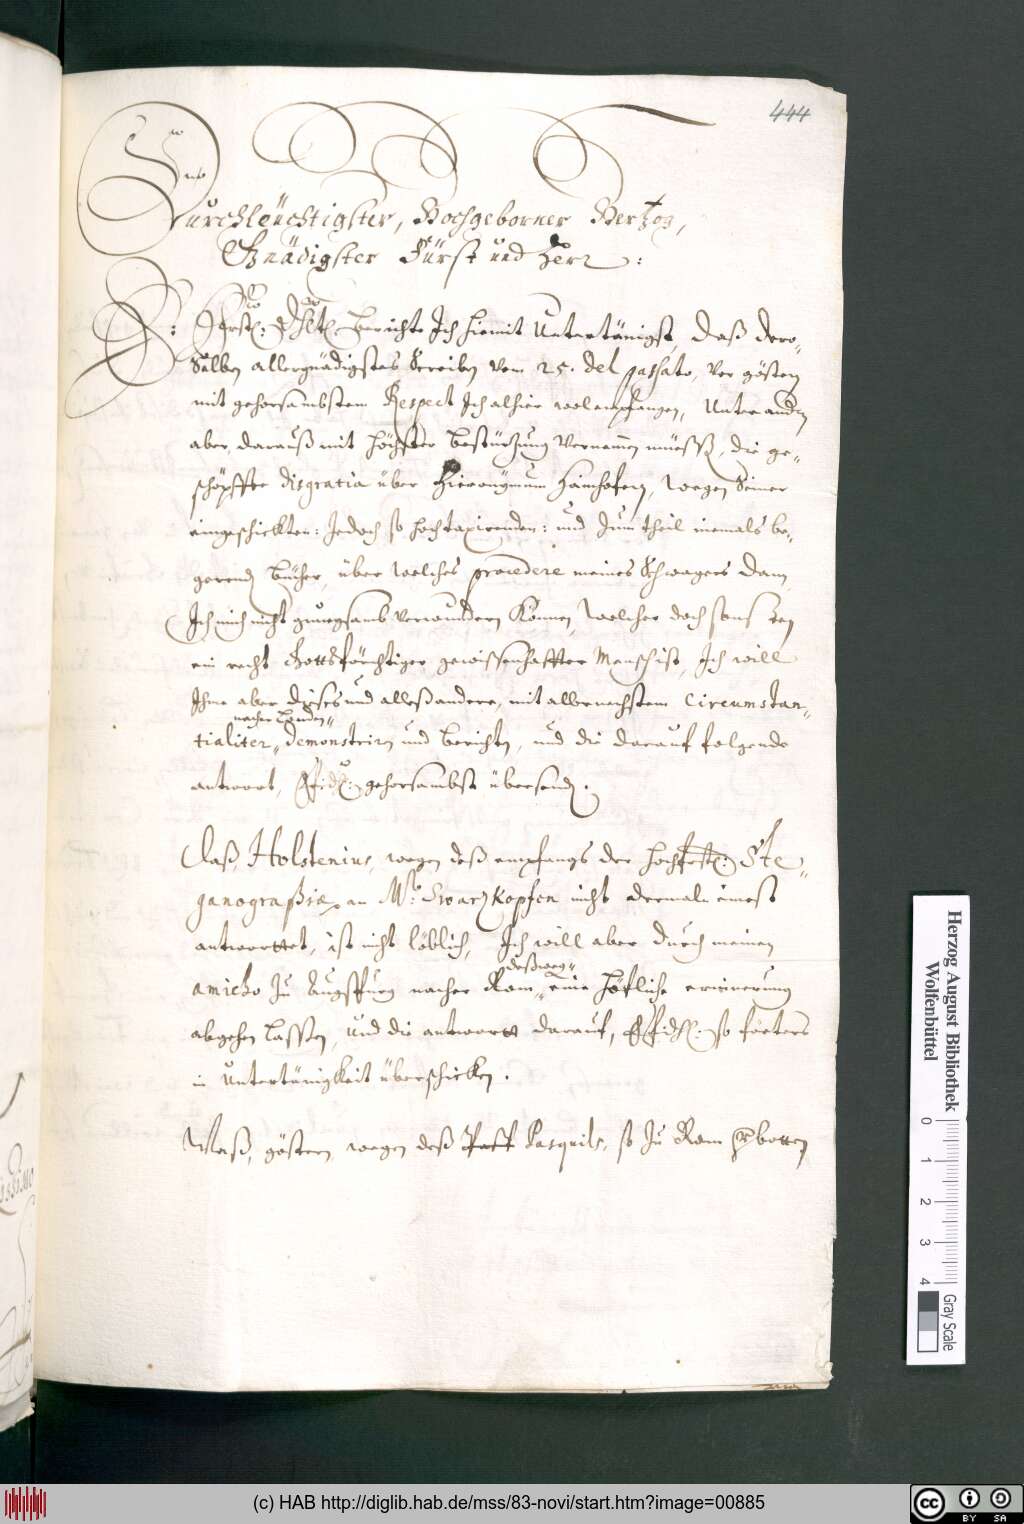 444
Durchleüchtigster, Hochgeborner Hertzog,
Gnädigster Fürst und Herr:
E: Frstl: Dhlt: berichte Ich hiemit Untertänigst, daß dero-
Selben allergnädigstes Screiben vom 25. del passato, vor gösten
mit gehorsambstem Respect Ich alhier wol empfangen, Unter andern
aber darauß mit höchster bestürtzung vernemen müesß, die ge-
schöpffte disgratia über Hieronÿmum Hainhofern, wegen Seiner
eingeschickten: Jedoch so hoch taxirenden: und Zum theil niemals be-
gerend Bücher, über welches procedere meines Schwagers dann
Ich mich nicht gnuegsamb verwundern Können, welcher doch sonsten
ein recht Gottsförchtiger gewissenhaffter Mensch ist, Ich will
Ihme aber dises und alleß andere, mit allernechstem Circumstan-
nacher Londen"
tialiter" demonstrirn und berichtn, und die darauf folgende
antwort, gehorsambst übersenden.
Daß, Holstenius, wegen deß empfangs der hochfrstl: Ste-
ganographiæ an Mr: Swarzkopfen nicht dermaln einest
antworttet, ist nicht löblich, Ich will aber durch meinen
deßweg"
amicho Zu Augspurg nacher Rom" eine höfliche erinnerung
abgehen lassen, und die antwortt darauf, so förters
in Untertänigkeit überschicken.
Waß, gösten, wegen deß Pasquils, so Zu Rom verbotten
Herzog August Bibliothek
Wolfenbüttel
0 1 2 3 4
Gray Scale
(c) HAB http://diglib.hab.de/mss/83-novi/start.htm?image=00885
cc BY SA